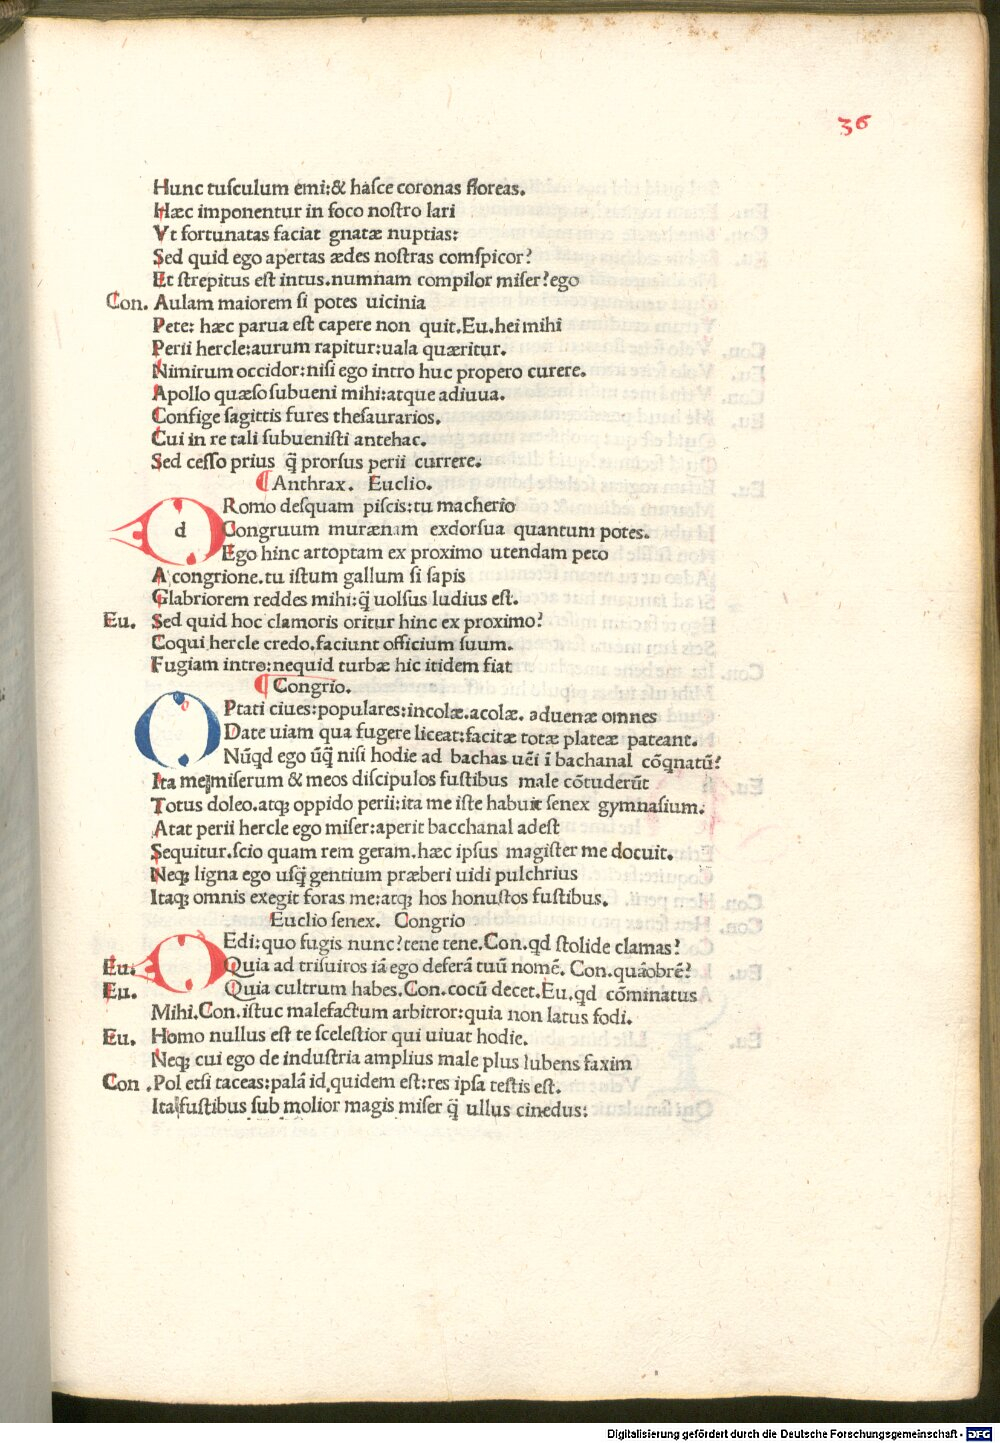 36
Hunc tusculum emi:& hasce coronas floreas.
Hæc imponentur in foco nostro lari
Vt fortunatas faciat gnatæ nuptias:
Sed quid ego apertas ædes nostras comspicor?
Et strepitus est intus.numnam compilor miser?ego
Con. Aulam maiorem si potes uicinia
Pete: hæc parua est capere non quit.Eu.hei mihi
Perii hercle:aurum rapitur:uala quæritur.
Nimirum occidor:nisi ego intro huc propero curere.
Apollo quæso subueni mihi:atque adiuua.
Confige sagittis fures thesaurarios.
Cui in re tali subuenisti antehac.
Sed cesso prius q̃ prorsus perii currere.
¶ Anthrax. Euclio.
d
Romo desquam piscis:tu macherio
Congruum murænam exdorsua quantum potes.
Ego hinc artoptam ex proximo utendam peto
A congrione.tu istum gallum si sapis
Glabriorem reddes mihi:q̃ uolsus ludius est.
Eu. Sed quid hoc clamoris oritur hinc ex proximo?
Coqui hercle credo.faciunt officium suum.
Fugiam intro:nequid turbæ hic itidem fiat
¶ Congrio.
O
Ptati ciues:populares:incolæ.acolæ. aduenæ omnes
Date uiam qua fugere liceat:facitæ totæ plateæ pateant.
Nũqd ego ũq̃ nisi hodie ad bachas uẽi ĩ bachanal cõqnatũ?
Ita me miserum & meos discipulos fustibus male cõtuderũt
Totus doleo.atq; oppido perii:ita me iste habuit senex gymnasium.
Atat perii hercle ego miser:aperit bacchanal adest
Sequitur.scio quam rem geram.hæc ipsus magister me docuit.
Neq; ligna ego usq̃ gentium præberi uidi pulchrius
Itaq; omnis exegit foras me:atq; hos honustos fustibus.
Euclio senex. Congrio
Edi:quo fugis nunc?tene tene.Con.qd stolide clamas?
Eu. Quia ad trisuiros iã ego deferã tuũ nomẽ. Con.quãobrẽ?
Eu. Quia cultrum habes.Con.cocũ decet.Eu.qd cõminatus
Mihi.Con.istuc malefactum arbitror:quia non latus fodi.
Eu. Homo nullus est te scelestior qui uiuat hodie.
Neq; cui ego de industria amplius male plus lubens faxim
Con .Pol etsi taceas:palã id,quidem est:res ipsa testis est.
Ita fustibus sub molior magis miser q̃ ullus cinedus:
Digitalisierung gefördert durch die Deutsche Forschungsgemeinschaft - DFG